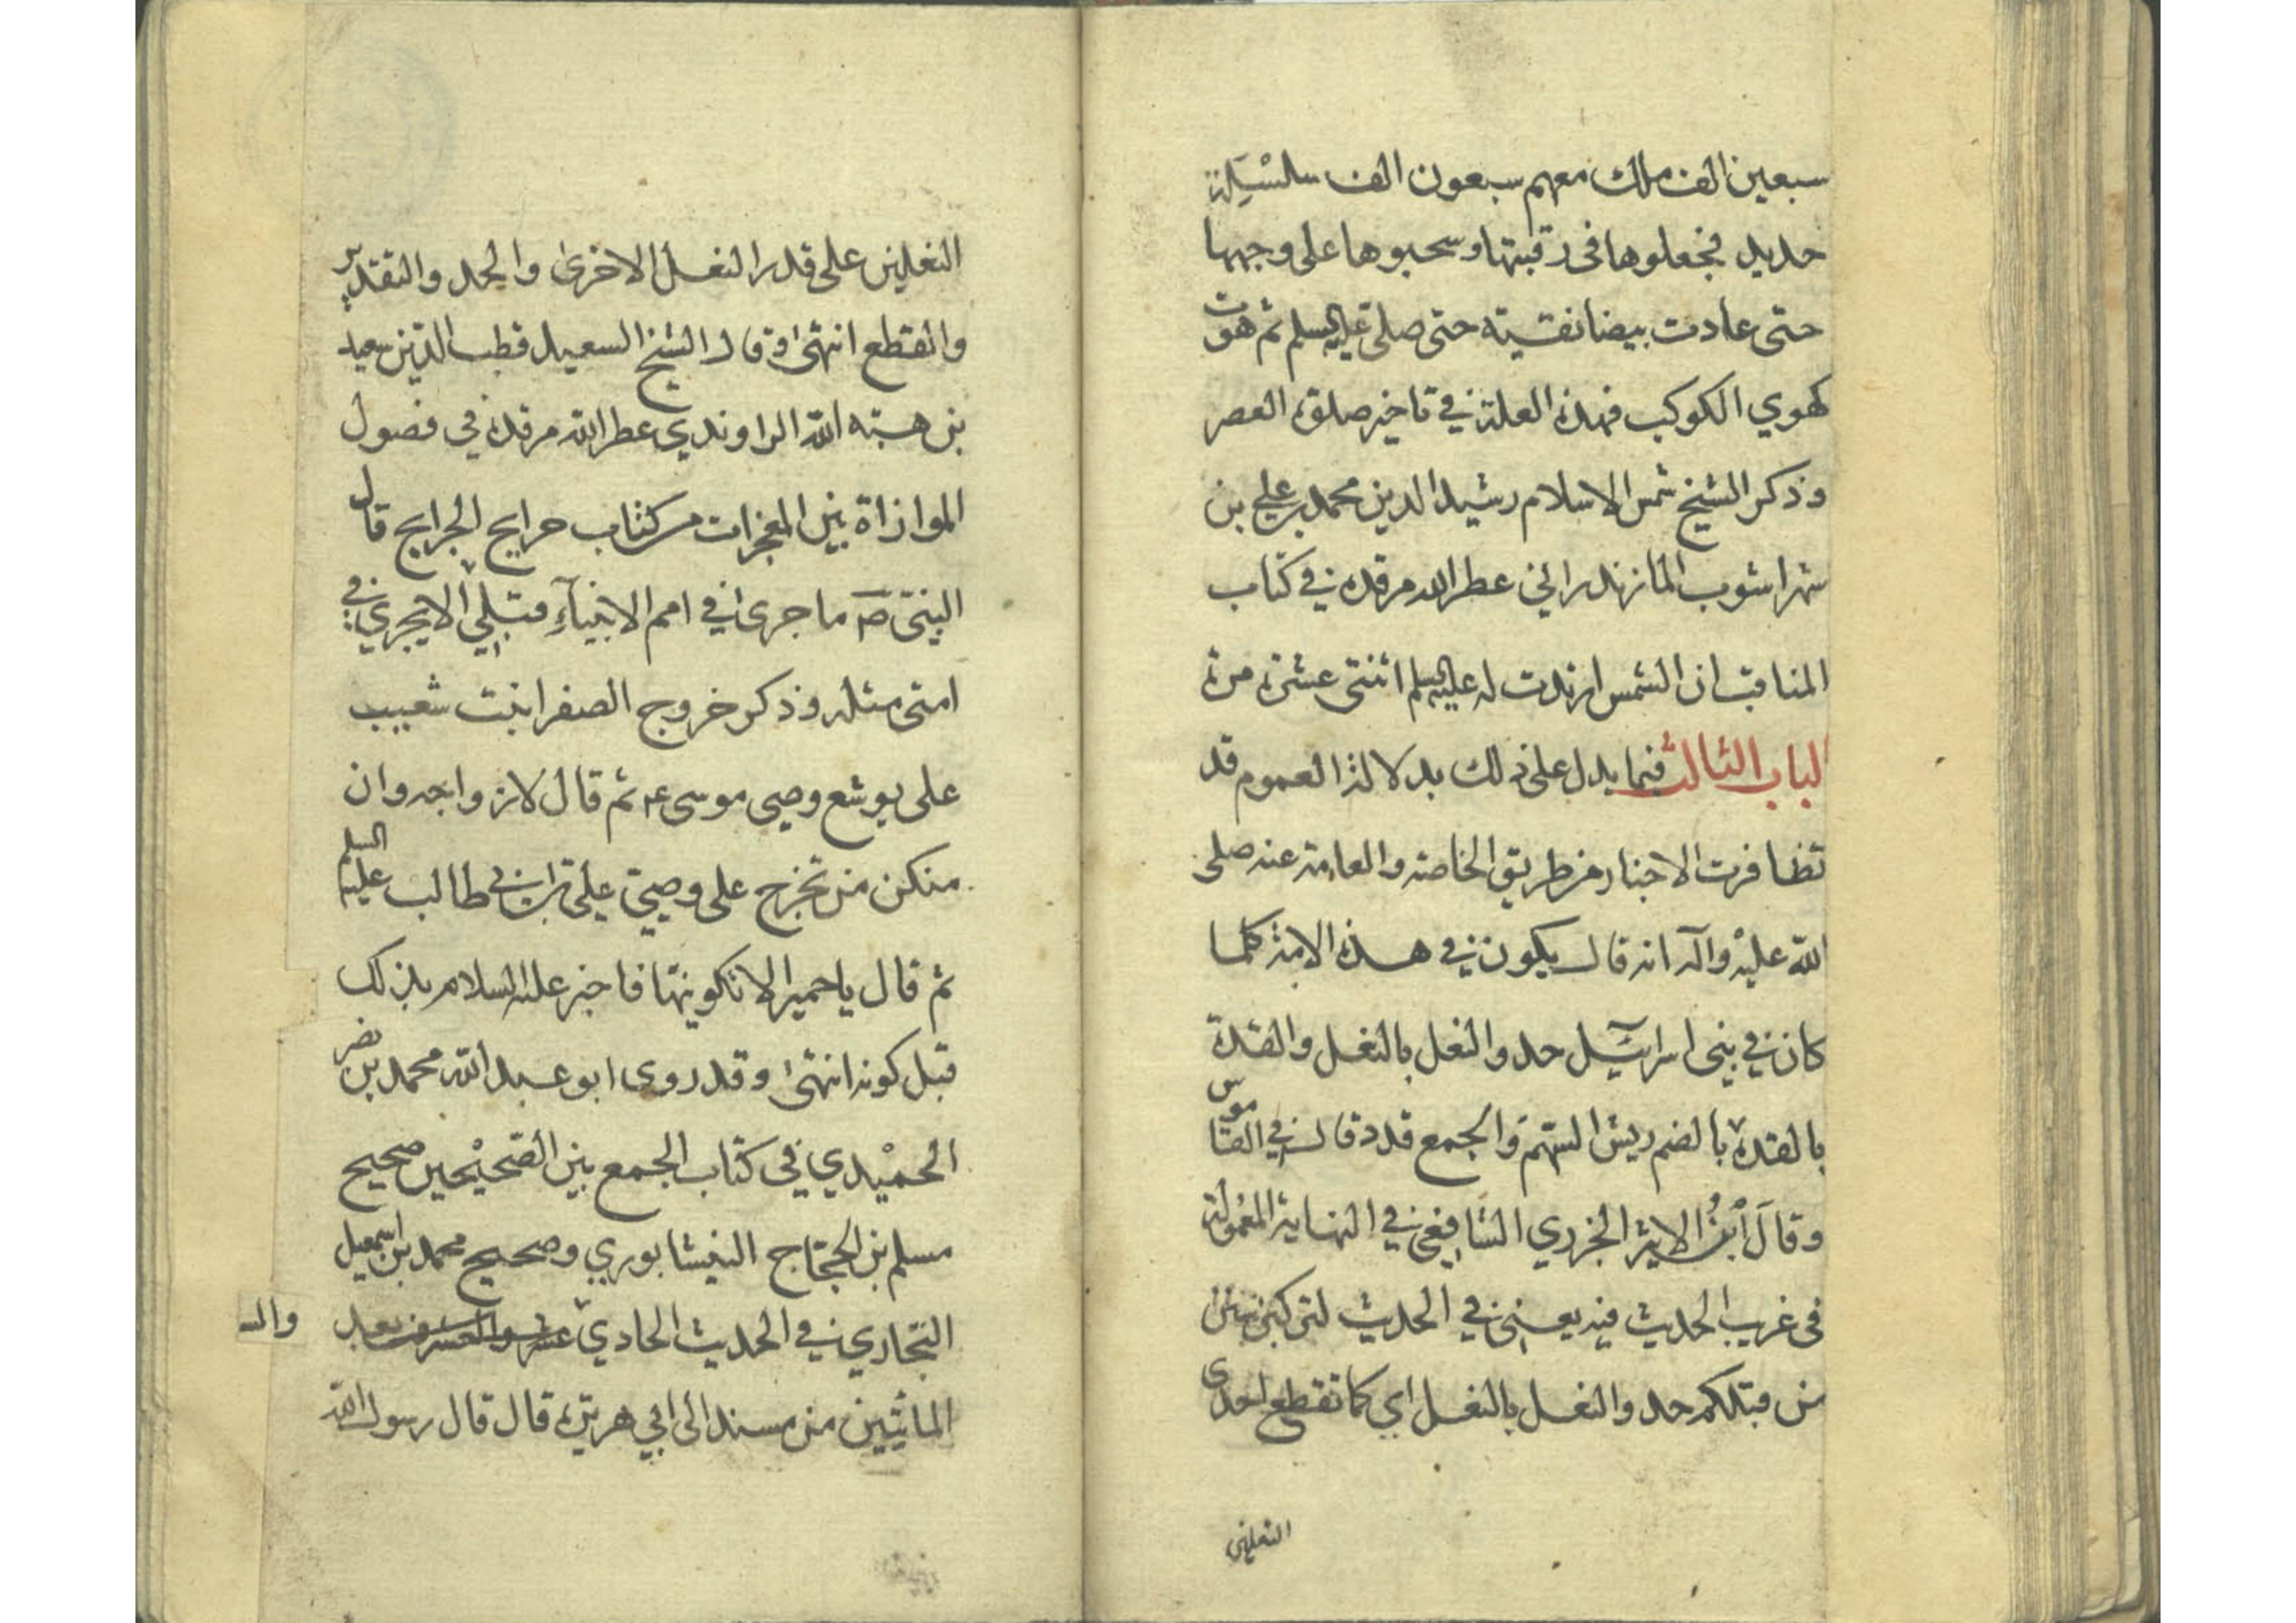 سبعين الف ملك معهم سبعون الف سلسلة
حديد فجعلوها فى رقبتها وسحبوها على وجهها
حتى عادت بيضا نقية حتى صلى عليه السلم ثم هوت
كهوي الكوكب فهذه العلة في تاخير صلوة العصر
وذكر الشيخ شمس الاسلام رشيد الدين محمد بن علي بن
شهراشوب المازندراني عطر الله مرقده في كتاب
المناقب ان الشمس ردت له عليه السلم اثنتى عشرة مرة
الباب الثالث فيما يدل على ذلك بدلالة العموم قد
تظافرت الاخبار من طريق الخاصة والعامة عنه صلى
الله عليه وآله انه قال يكون في هذه الامة كلما
كان في بنى اسرائيل حد والنعل بالنعل والقدة
بالقدة بالضم ريش السهم والجمع قدد قال في القاموس
وقال ابن الاثير الجزري الشافعي في النهاية المعمولة
فى غريب الحديث فيه يعني في الحديث لتركبن سنن
من قبلكم حد والنعل بالنعل اي كما تقطع احدى
النعلين
النعلين على قدر النعل الاخرى والحد والتقدير
والقطع انتهى وقال الشيخ السعيد قطب الدين سعيد
بن هبة الله الراوندي عطر الله مرقده في فصول
الموازاة بين المعجزات من كتاب خرايج الجرايج قال
النبى ص ما جرى في امم الانبياء قبلي الا يجري في
امتى مثله وذكر خروج الصفرا بنت شعيب
على يوشع وصى موسى ع ثم قال لازواجه وان
منكن من تخرج على وصيى على بن ابى طالب عليه السلم
ثم قال يا حميرا لا تكونيها فاخبر عليه السلام بذلك
قبل كونه انتهى وقد روى ابو عبد الله محمد بن نصر
الحميدي في كتاب الجمع بين الصحيحين صحيح
مسلم بن الحجاج النيشابوري وصحيح محمد بن اسمعيل
البخاري في الحديث الحادي عشر والعشرين بعد
والـ
المائتين من مسند ابى هريرة قال قال رسول الله